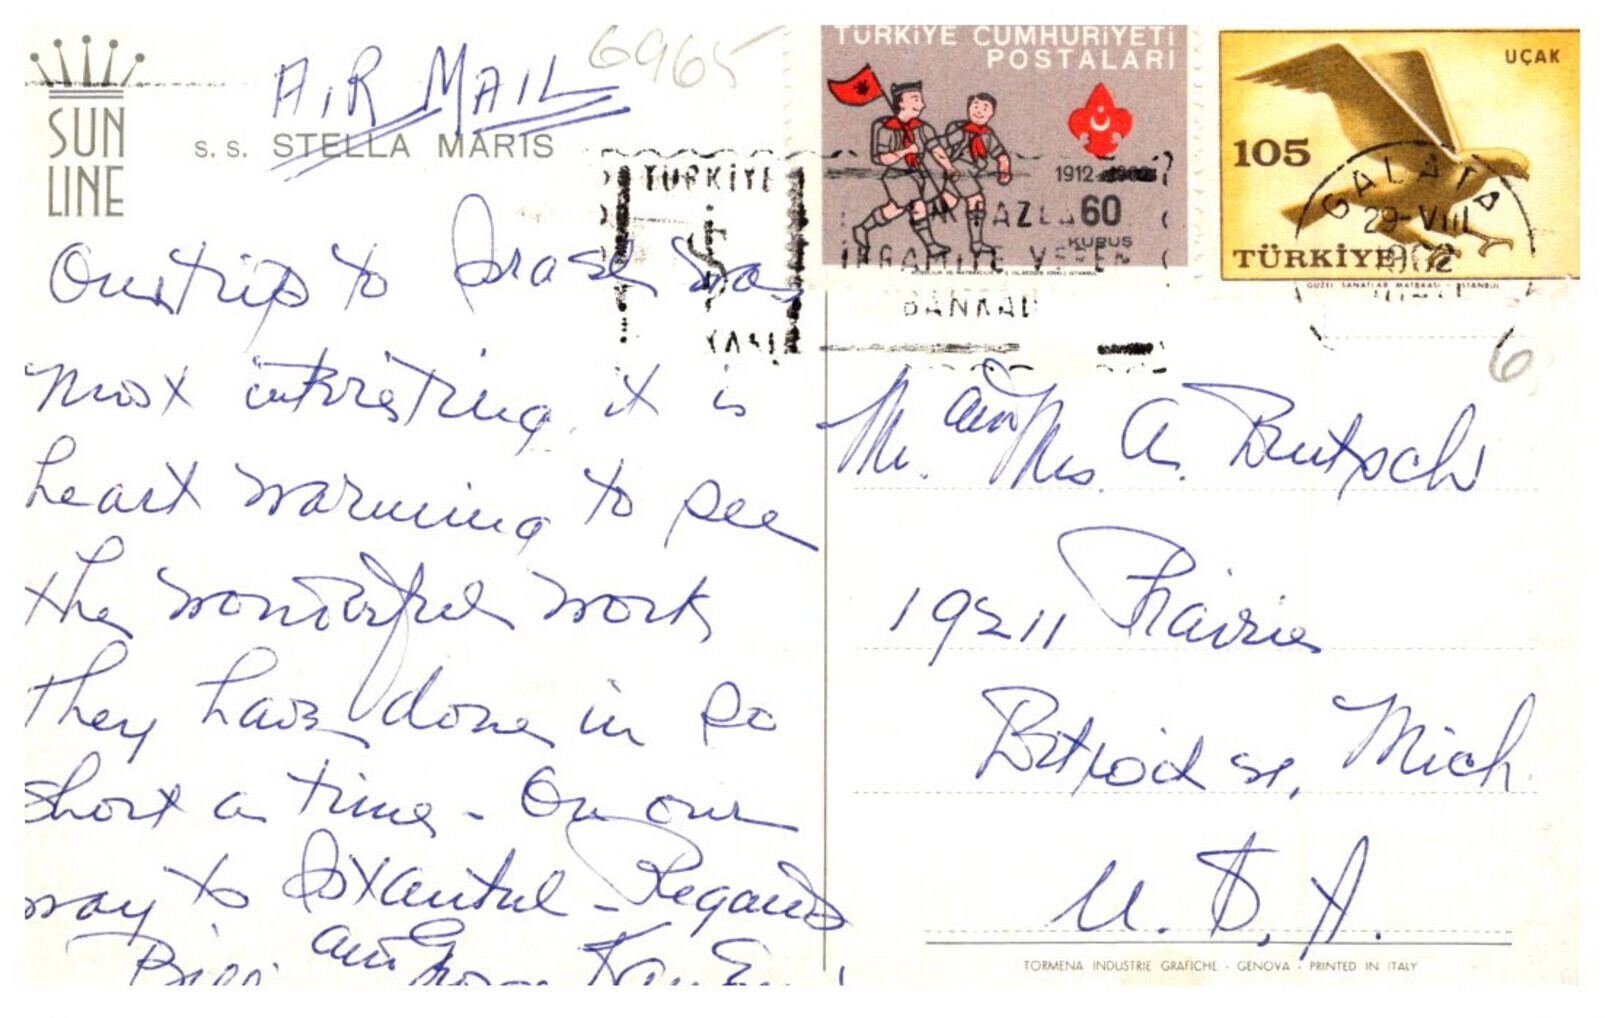 SUN
LINE
AIR MAIL
6965
S. S. STELLA MARIS
Our trip to Israel was
most interesting, it is
heart warming to see
the wonderful work
they have done in so
short a time - On our
way to Istanbul - Regards
Bill and
TÜRKİYE CUMHURİYETİ
POSTALARI
1912
60
KURUŞ
UÇAK
105
TÜRKİYE
GÜZEL SANATLAR MATBAASI - İSTANBUL
TÜRKİYE
İŞ
İKRAMİYE VEREN
GALATA
29-VIII
6
Mr. and Mrs. A. Butsch
19211 Prairie
Detroit 21, Mich.
U. S. A.
TORMENA INDUSTRIE GRAFICHE - GENOVA - PRINTED IN ITALY